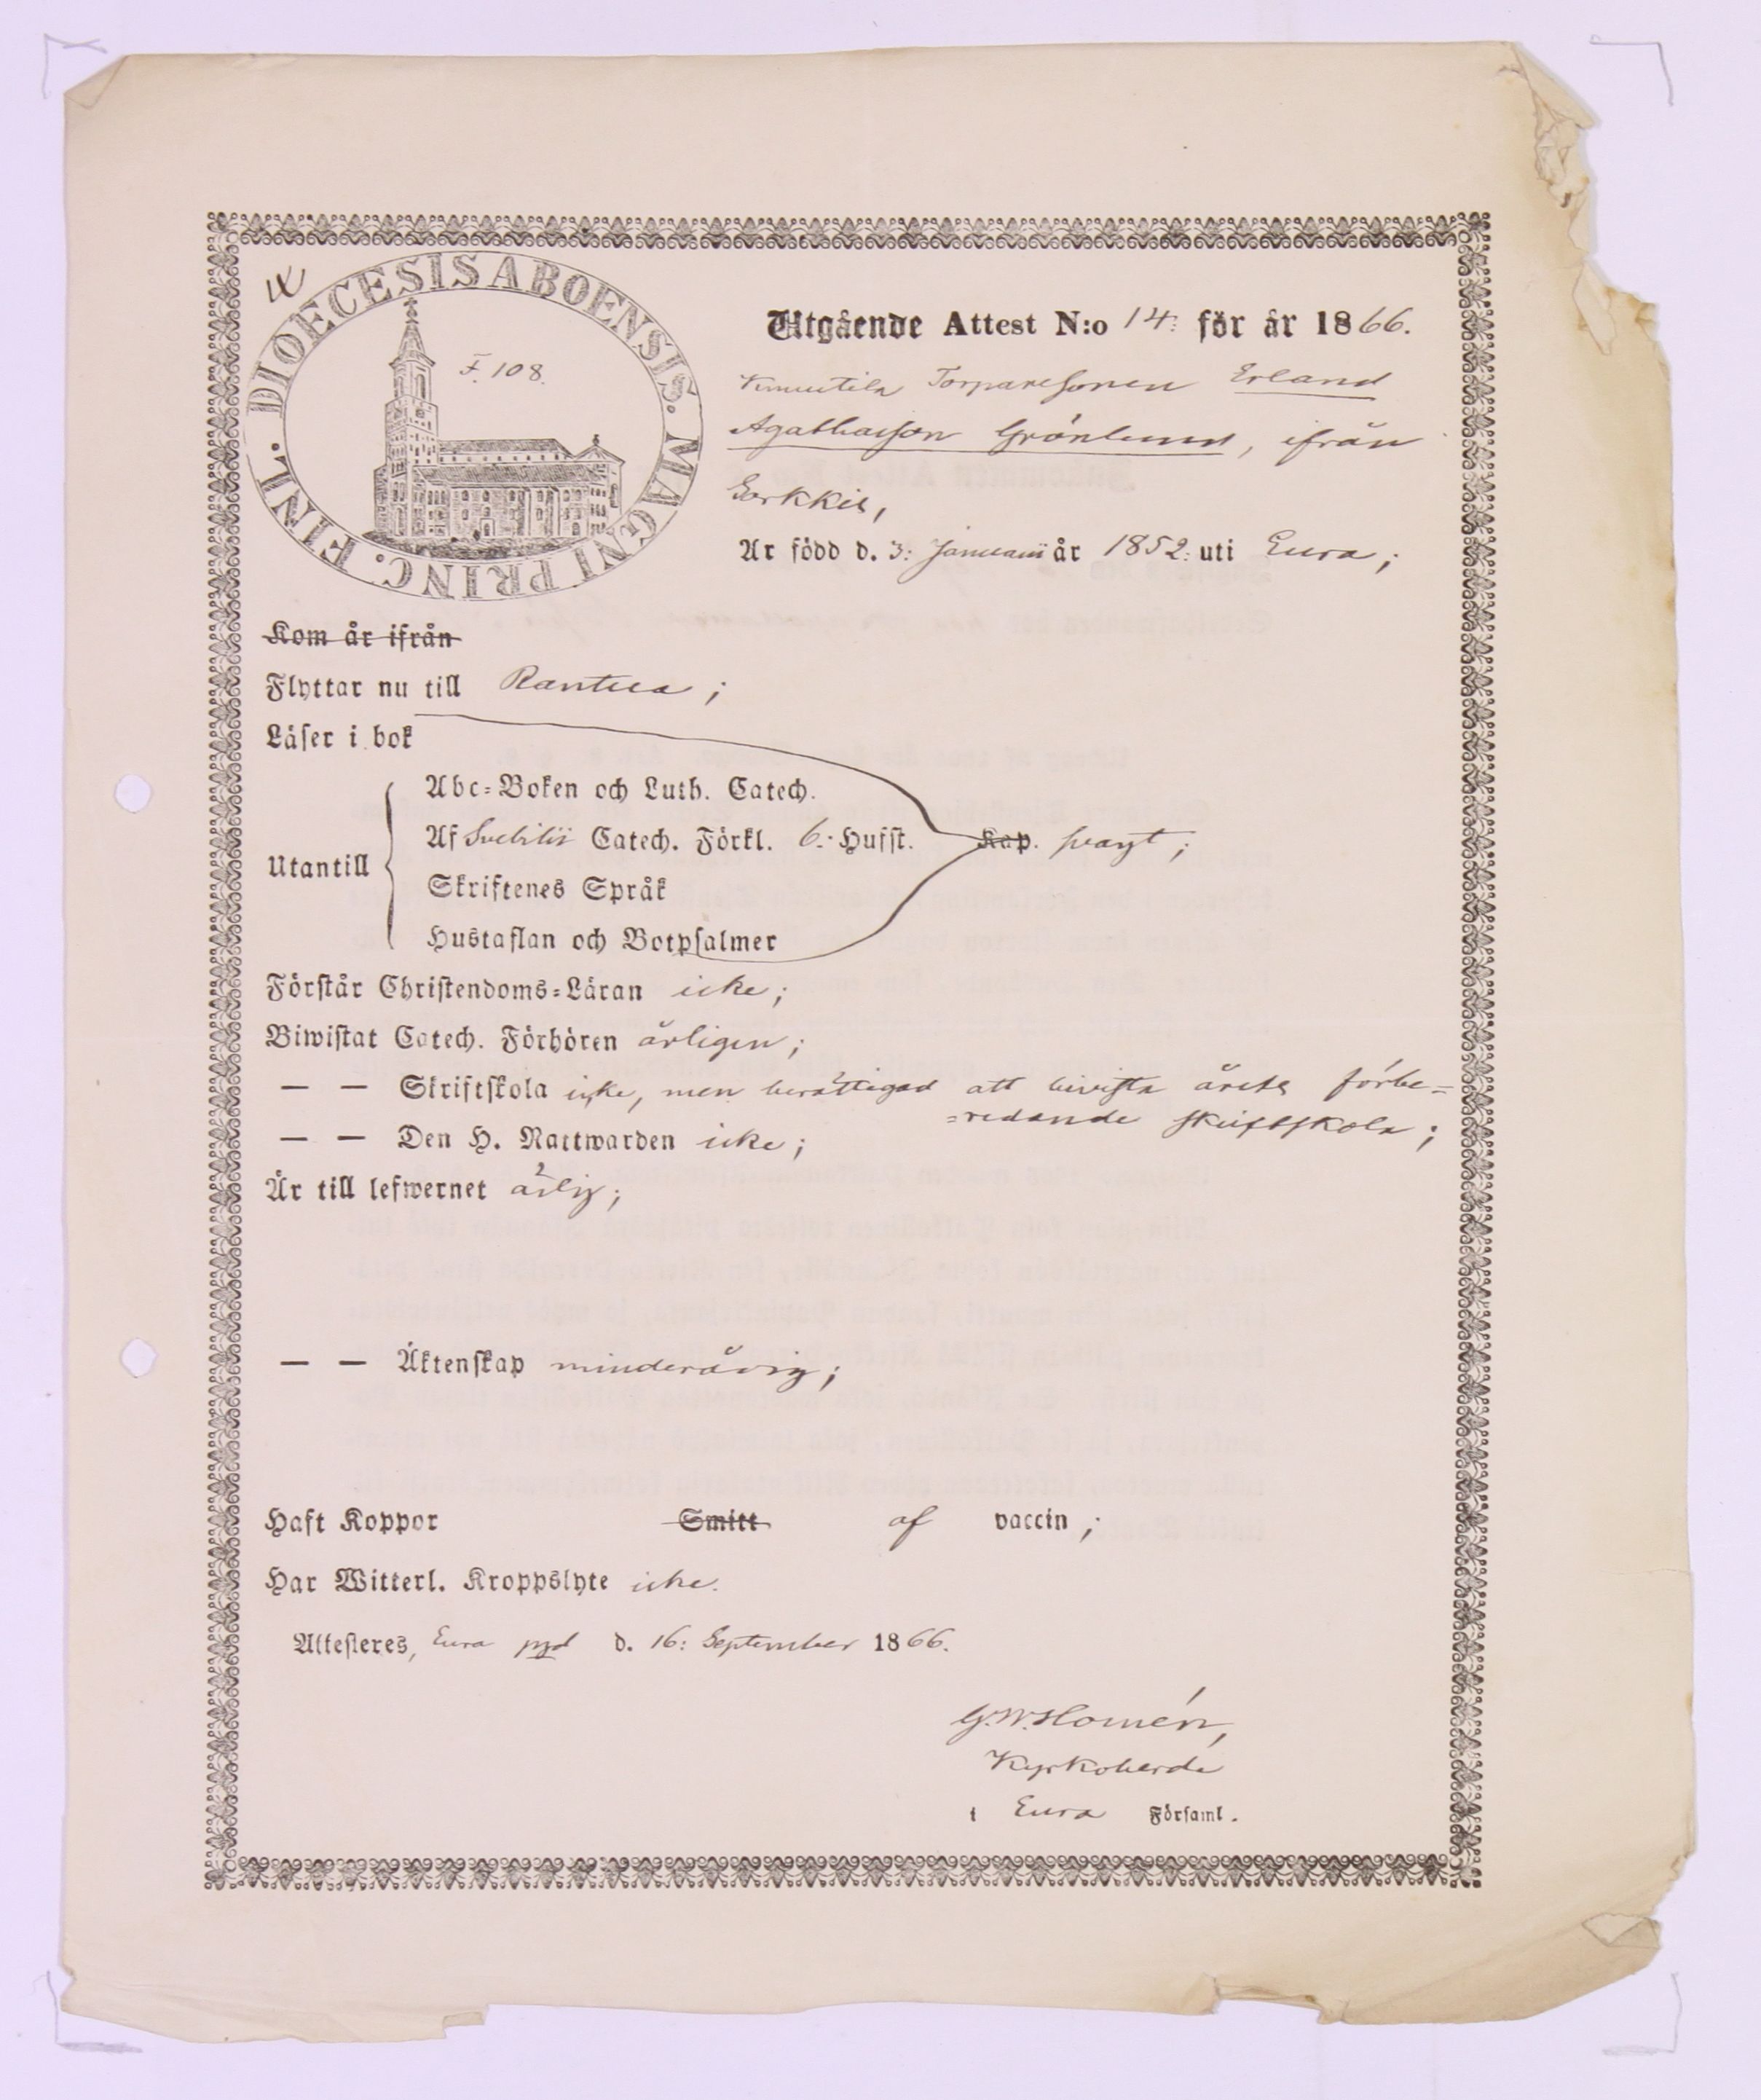 DIOECESIS ABOENSIS. MAGNI PRINC. FINL.
F. 108.
Utgående Attest N:o 14: för år 1866.
Torparesonen Erland
Agathasson Grönlund, ifrån
Är född d. 3: Januarii år 1852: uti Eura;
Kom år ifrån
Flyttar nu till Rantila;
Läser i bok
Utantill
Abc-Boken och Luth. Catech.
Af Svebilii Catech. Förkl. 6: Hufst. Kap. svagt;
Skriftenes Språk
Hustaflan och Botpsalmer
Förstår Christendoms-Läran icke;
Biwistat Catech. Förhören årligen;
— — Skriftskola icke, men berättigad att bivista årets förbe=
=redande skriftskola;
— — Den H. Nattwarden icke;
Är till lefwernet ärlig;
— — Äktenskap minderårig;
Haft Koppor Smitt af vaccin;
Har Witterl. Kroppslyte icke.
Attesteres, Eura pgd d. 16: September 1866.
G.W. Homén,
Kyrkoherde
i Eura Församl.